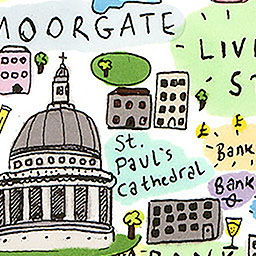 MOORGATE
LIV
ST
St.
Paul's
Cathedral
Bank
Bank
BANK